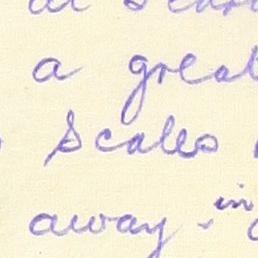 a great
scales
away - in